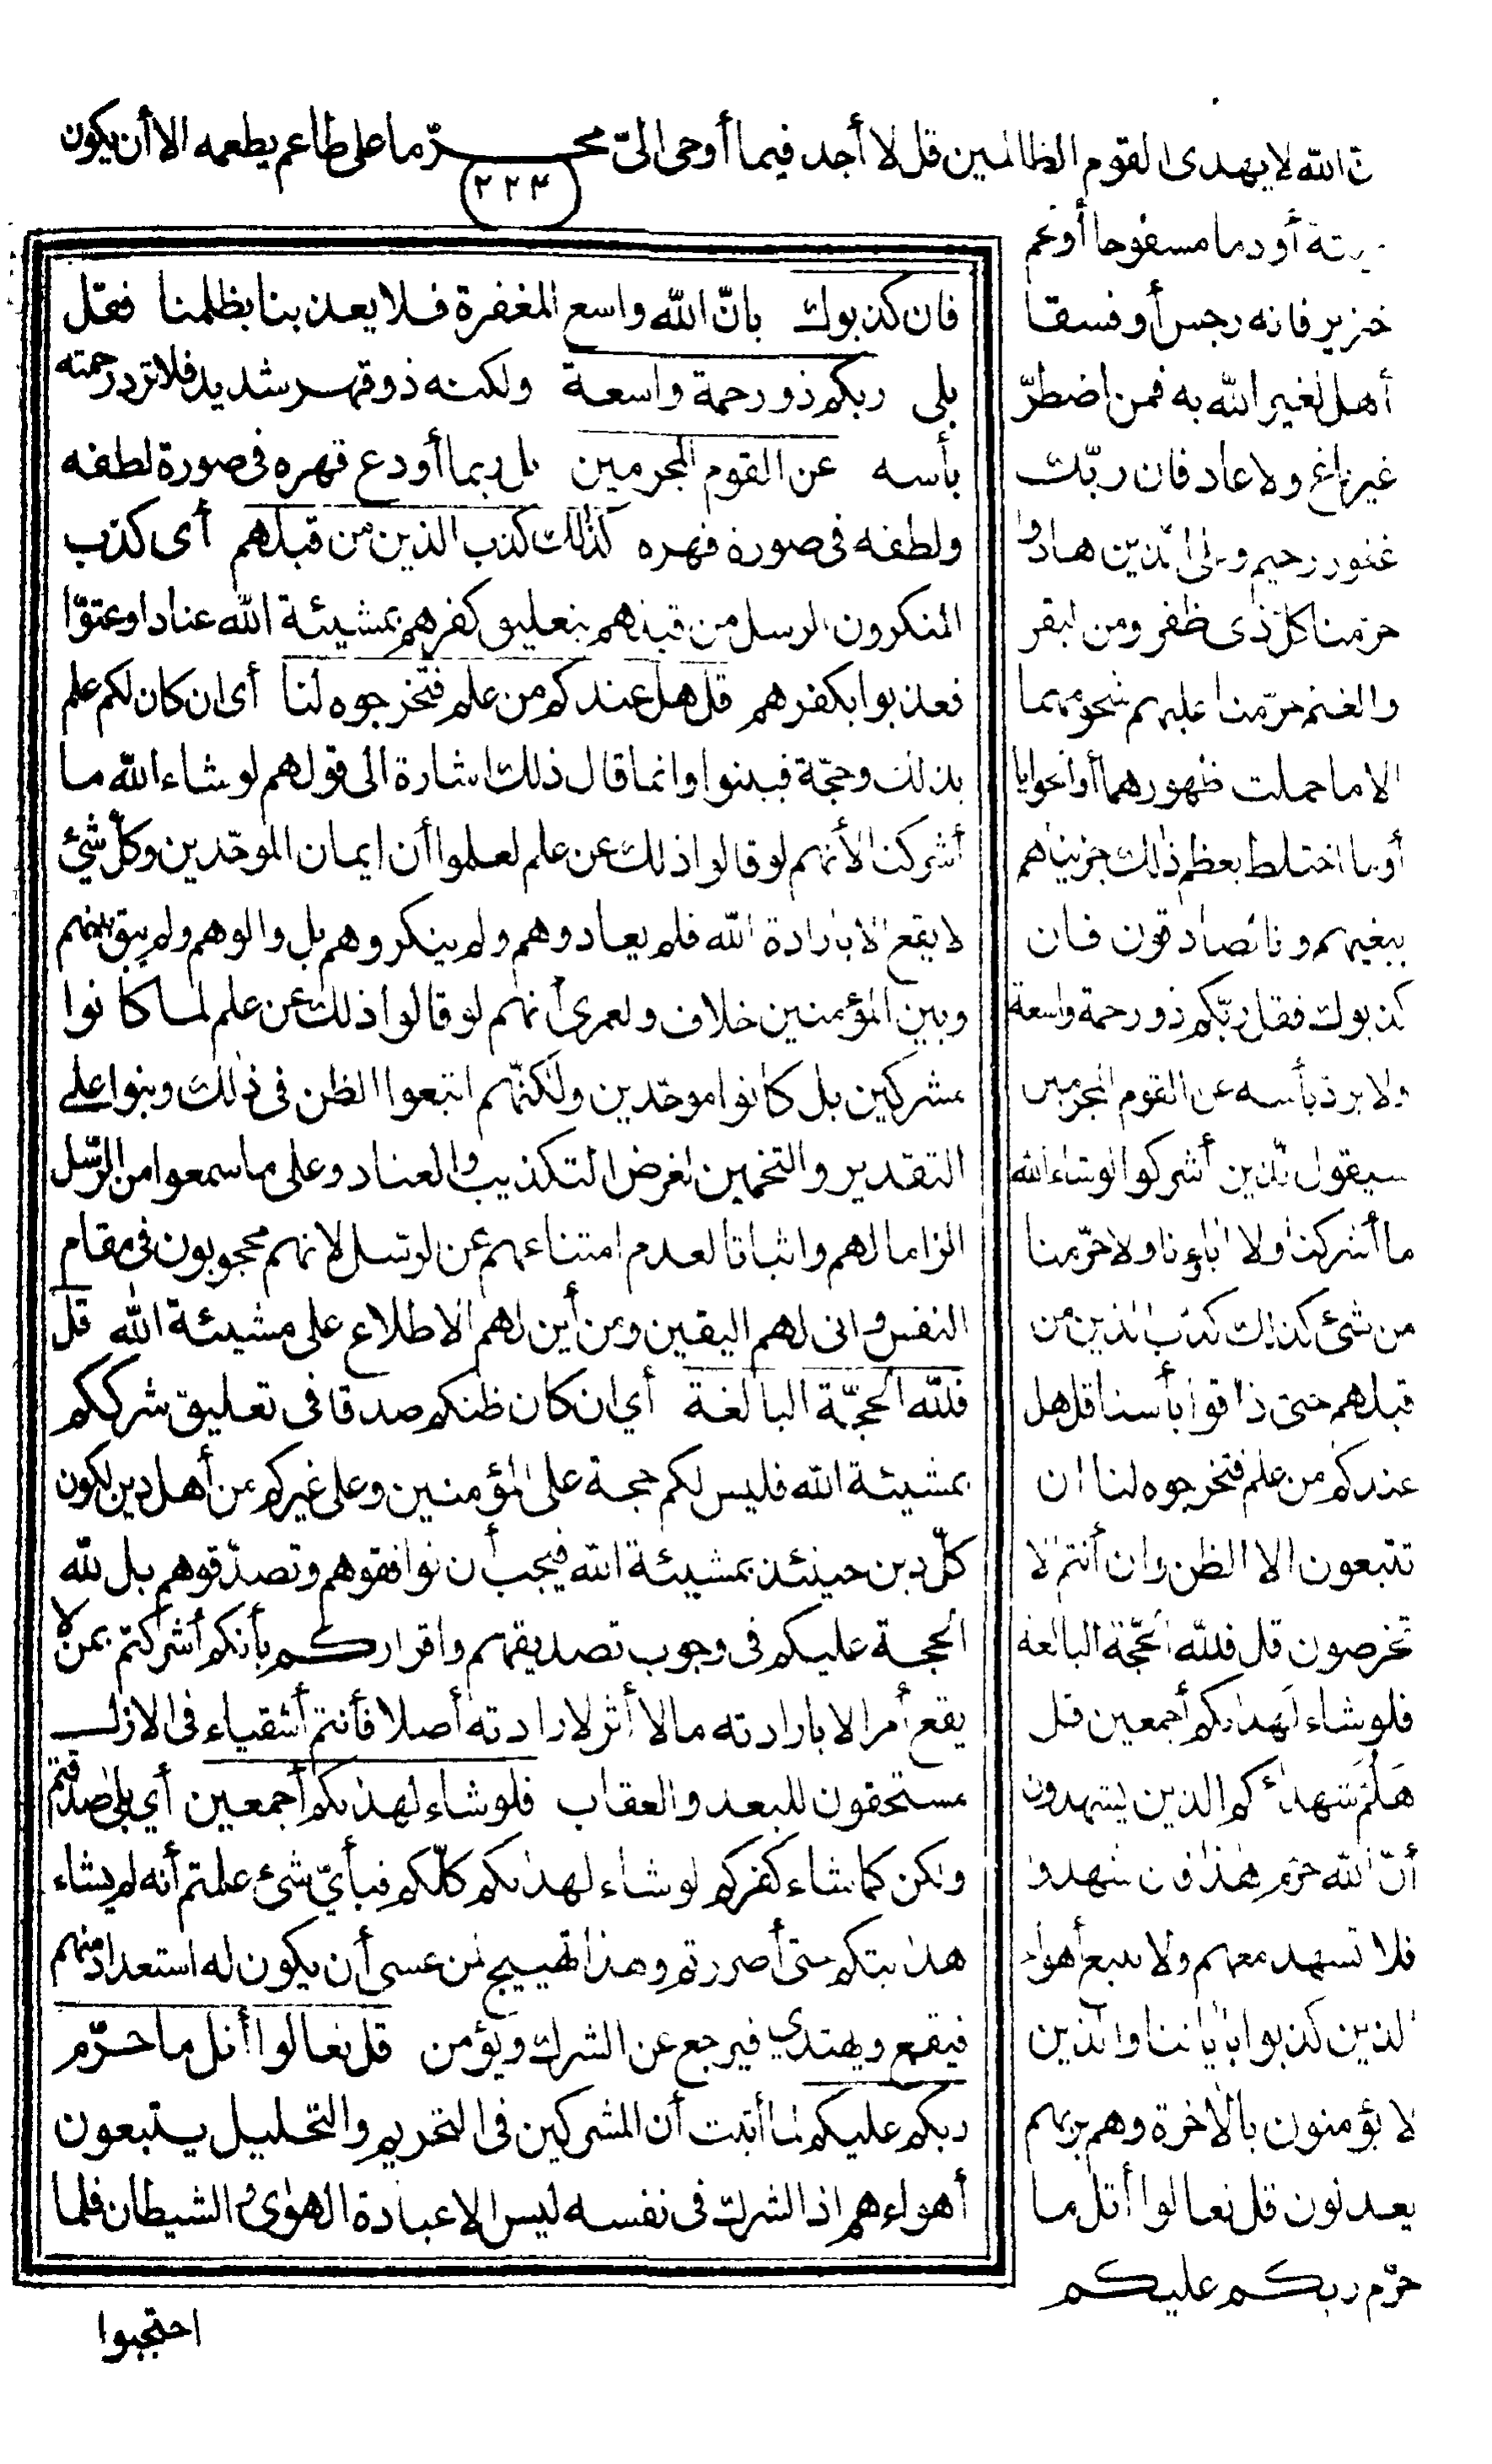 ن الله لا يهدى القوم الظالمين قل لا أجد فيما أوحى الىّ محرّما على طاعم يطعمه الا أن يكون
٢٢٣
ميتة أو دما مسفوحا أو لحم
خنزير فانه رجس أو فسقا
أهل لغير الله به فمن اضطرّ
غير باغ ولا عاد فان ربّك
غفور رحيم وعلى الذين هادوا
حرّمنا كلّ ذى ظفر ومن البقر
والغنم حرّمنا عليهم شحومهما
الا ما حملت ظهورهما أو الحوايا
أو ما اختلط بعظم ذلك جزيناهم
ببغيهم وانا لصادقون فان
كذبوك فقل ربّكم ذو رحمة واسعة
ولا يردّ بأسه عن القوم المجرمين
سيقول الذين أشركوا لو شاء الله
ما أشركنا ولا اباؤنا ولا حرّمنا
من شئ كذلك كذب الذين من
قبلهم حتى ذاقوا بأسنا قل هل
عندكم من علم فتخرجوه لنا ان
تتبعون الا الظن وان أنتم الا
تخرصون قل فللّه الحجّة البالغة
فلو شاء لهداكم أجمعين قل
هلمّ شهداءكم الذين يشهدون
أنّ الله حرّم هذا فان شهدوا
فلا تشهد معهم ولا تتبع أهواء
الذين كذبوا باياتنا والذين
لا يؤمنون بالاخرة وهم بربهم
يعدلون قل تعالوا أتل ما
حرّم ربكم عليكم
فان كذبوك بانّ الله واسع المغفرة فلا يعذبنا بظلمنا فقل
بلى ربكم ذو رحمة واسعة ولكنه ذو قهر شديد فلا تردّ رحمته
بأسه عن القوم المجرمين بل ربما أودع قهره فى صورة لطفه
ولطفه فى صورة قهره كذلك كذب الذين من قبلهم أى كذب
المنكرون الرسل من قبلهم بتعليق كفرهم بمشيئة الله عنادا وعتوّا
فعذبوا بكفرهم قل هل عندكم من علم فتخرجوه لنا أى ان كان لكم علم
بذلك وحجّة فبينوا وانما قال ذلك اشارة الى قولهم لو شاء الله ما
أشركنا لأنهم لو قالوا ذلك عن علم لعلموا أن ايمان الموحّدين وكلّ شئ
لا يقع الا بارادة الله فلم يعادوهم ولم ينكروهم بل والوهم ولم يبق بينهم
وبين المؤمنين خلاف ولعمرى أنهم لو قالوا ذلك عن علم لما كانوا
مشركين بل كانوا موحّدين ولكنّهم اتبعوا الظن فى ذلك وبنوا على
التقدير والتخمين لغرض التكذيب والعناد وعلى ما سمعوا من الرّسل
الزاما لهم واثباتا لعدم امتناعهم عن الرسل لانهم محجوبون فى مقام
النفس وانى لهم اليقين ومن أين لهم الاطلاع على مشيئة الله قل
فللّه الحجّة البالغة أي ان كان ظنكم صدقا فى تعليق شرككم
بمشيئة الله فليس لكم حجة على المؤمنين وعلى غيركم من أهل دين لكون
كلّ دين حينئذ بمشيئة الله فيجب أن توافقوهم وتصدّقوهم بل للّه
الحجة عليكم فى وجوب تصديقهم واقراركم بأنكم أشركتم بمن لا
يقع أمر الا بارادته ما لا أثر لارادته أصلا فأنتم أشقياء فى الازل
مستحقون للبعد والعقاب فلو شاء لهداكم أجمعين أي بلى صدقتم
ولكن كما شاء كفركم لو شاء لهداكم كلّكم فبأيّ شئ علمتم أنه لم يشاء
هدايتكم حتى أصررتم وهذا تهييج لمن عسى أن يكون له استعداد منهم
فيقمع ويهتدي فيرجع عن الشرك ويؤمن قل تعالوا أتل ما حرّم
ربكم عليكم لما أثبت أن المشركين فى التحريم والتحليل يتبعون
أهواءهم اذ الشرك فى نفسه ليس الا عبادة الهوى والشيطان فلما
احتجبوا